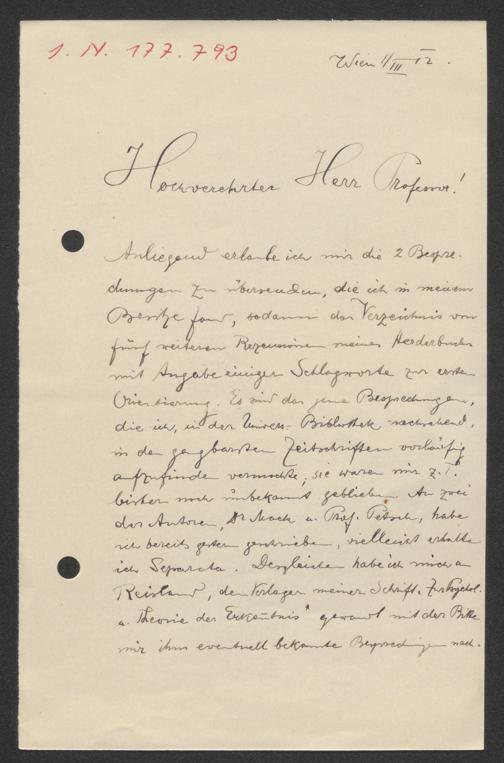 J. N. 177.793
Wien 1/III 12.
Hochverehrter Herr Professor!
Anliegend erlaube ich mir die 2 Bespre-
chungen zu übersenden, die ich in meinem
Besitze fand, sodann das Verzeichnis von
fünf weiteren Rezensionen meines Herderbuches
mit Angabe einiger Schlagworte zur ersten
Orientierung. Es sind das jene Besprechungen,
die ich, in der Univers.-Bibliothek nachsehend,
in den gangbarsten Zeitschriften vorläufig
aufzufinden vermochte; sie waren mir z. T.
bisher noch unbekannt geblieben. An zwei
der Autoren, Dr u. Prof. Petsch, habe
ich bereits gestern geschrieben, vielleicht erhalte
ich Separata. Desgleichen habe ich mich an
Reisland, den Verleger meiner Schrift „Zur Psychol.
u. Theorie der Erkenntnis" gewandt mit der Bitte
mir ihm eventuell bekannte Besprechungen nach-